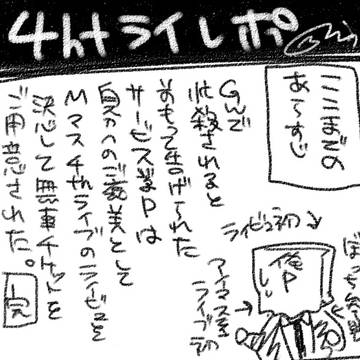 4thライレポ
ここまでの
あらすじ
Gんで
忙殺されると
おもって告げられた
サービス業Pは
自分へのご褒美として
Mマス4thライブのライビュを
決心して無事チケットを
ご用意された。
完
ライビュ初
俺P
アイマス系
ライブ初